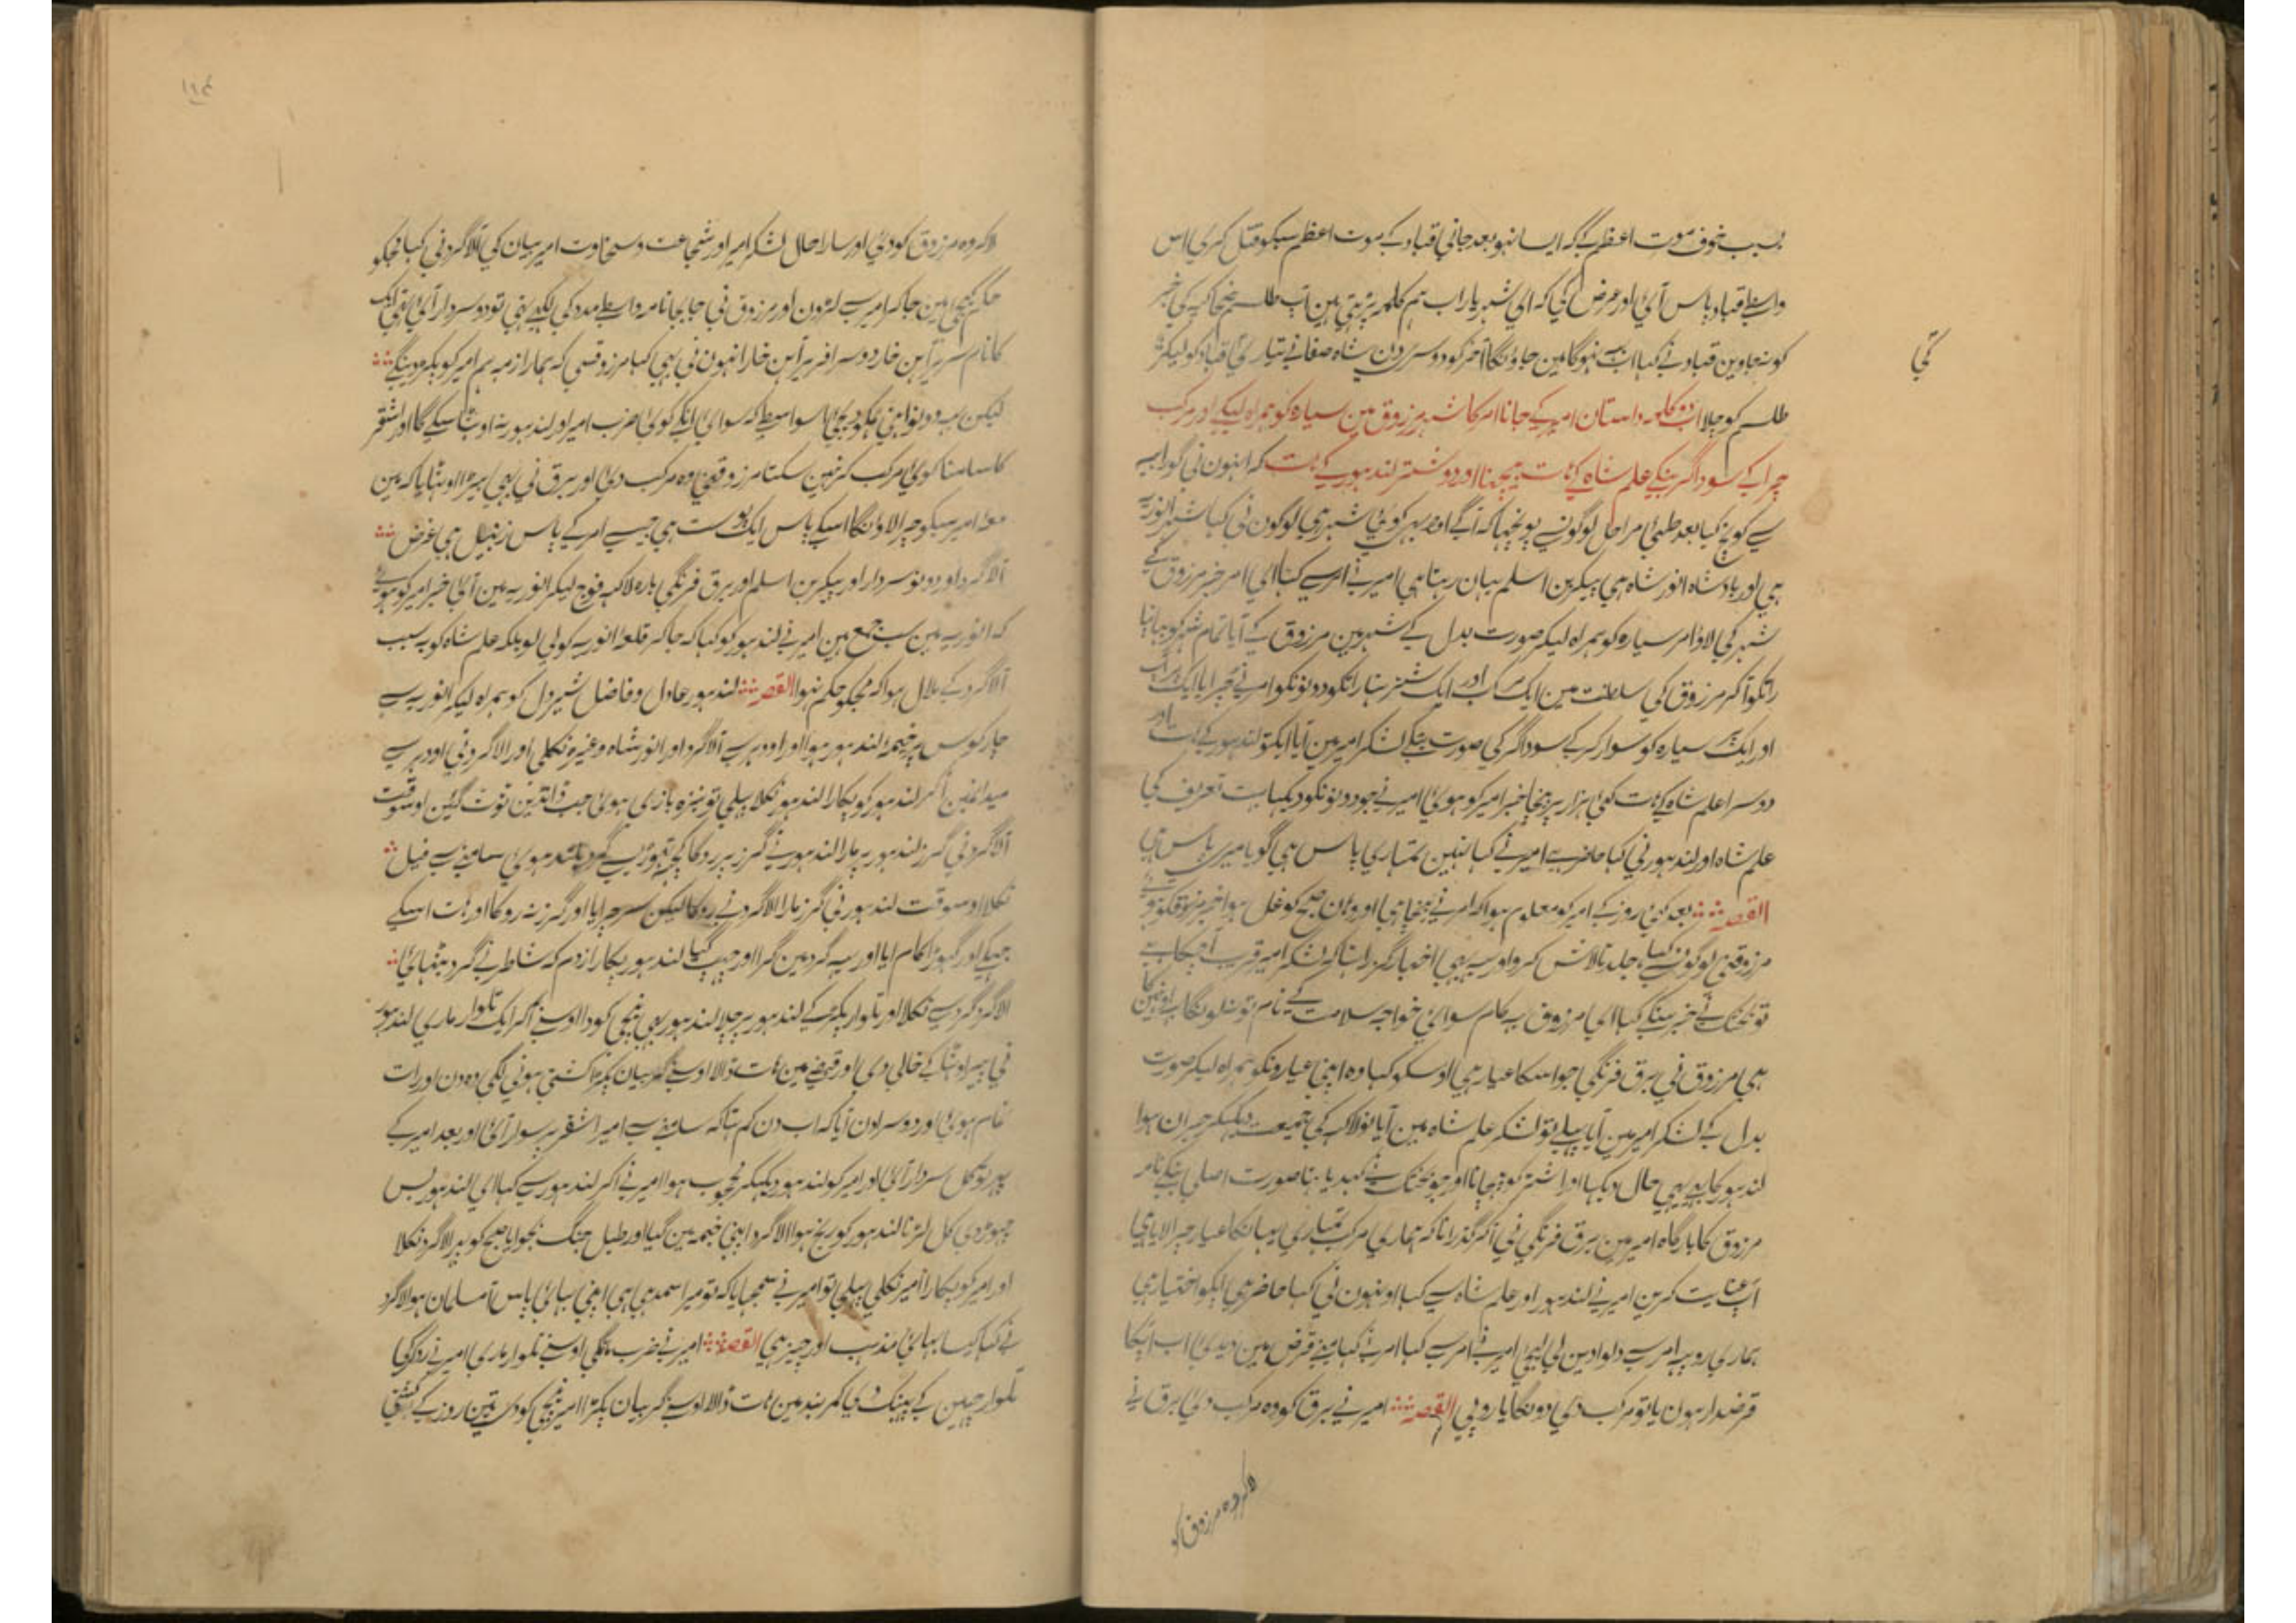 بسبب خوف موت اعظم کے کہ ایسا نہو بعد جانی قباد کے موت اعظم سبکو قتل کری اس
واسطے قباد پاس آئی اور عرض کی کہ ای شہریار اب ہم کلمہ پڑہتی ہین آپ طلسم ضحاکیہ کی خبر
کو نہ جاوین قباد نے کہا اب یہہ نہوگا مین جاونگا آخر کو دوسری دن شاہ صفا نے تیاری کی قباد کو لیکر
کی
طلسم کو چلا اب دو کلمہ داستان امیر کے جانا امر کا شہر مرزوق مین سیارہ کو ہمراہ لیکے اور مرکب
چرا کے سوداگر بنکے علم شاہ کے ہات بیچنا اور دو شتر لندہور کے ہات کہ انہون نی گورابیہ
سے کوچ کیا بعد طی مراحل لوگونسے پونچہا کہ آگے اور بہی کوئی شہر ہی لوگون نی کہا شہر انوریہ
ہی اور بادشاہ انور شاہ ہی پیکر بن اسلم یہان رہتا ہی امیر نے امر سے کہا ای امر خبر مرزوق کے
شہر کی لاو امر سیارہ کو ہمراہ لیکر صورت بدل کے شہر مین مرزوق کے آیا تمام شہر کو جہانا
راتکو آکر مرزوق کی سلطنت مین ایک مرکب اور ایک شتر بتا راتکو دونونکو امر نے چرایا ایک پر آپ
اور ایک پر سیارہ کو سوار کرکے سوداگر کی صورت بنکے لشکر امیر مین آیا ایکتو لندہور کے ہات اور
دوسرا علم شاہ کے ہات کئی ہزار پر بیچا خبر امیر کو ہوئی امیر نے جو دونونکو دیکہا بہت تعریف کی
علم شاہ اور لندہور نی کہا حاضر ہے امیر نے کہا نہین تمہاری پاس ہی گویا میری پاس ہی
القصہ بعد کئی روز کے امیر کو معلوم ہوا کہ امر نے بیچا ہی اور وہان صبح کو غل ہوا خبر مرزوقکو ہوئی
مرزوقنی لوگونسے کہا جلد تلاش کرو اور یہہ بہی اخبار گزرا تہا کہ لشکر امیر قریب آ پہنچا ہے
تو بختک نے خبر سنکے کہا ای مرزوق یہہ کام سوای خواجہ سلامت کے نام تو نلونگا اونہین کا
ہی مرزوق نی برق فرنگی جو اسکا عیار ہی اوسکو کہا وہ اپنی عیارونکو ہمراہ لیکر صورت
بدل کے لشکر امیر مین آیا پہلے تو لشکر علم شاہ مین آیا نو لاکہ کی جمعیت دیکہکر حیران ہوا
لندہور کا بہی یہی حال دیکہا اور اشتر کو پہچانا اور جو بختک نے کہدیا تہا صورت اصلی بنکے نامہ
مرزوق کا بارگاہ امیر مین برق فرنگی نی آکر گذرانا کہ ہماری مرکب تمہاری یہانکا عیار چرا لایا ہی
آپ عنایت کرین امیر نے لندہور اور علم شاہ سے کہا اونہون نی کہا حاضر ہی آپکو اختیار ہی
ہماری روپیہ امر سے دلوا دین لی لیجی امیر نے امر سے کہا امر نے کہا مینے قرض مین دیدئی اب آپکا
قرضدار ہون یا تو مرکب دی دونگا یا روپی القصہ امیر نے برق کو وہ مرکب دئی برق نے
لاکر وہ مرزوق کو
لاکر وہ مرزوق کو دئی اور سارا حال لشکر امیر اور شجاعت و سخاوت امیر بیان کی آلاگرد نی کہا مجکو
حکم کیجی مین جا کر امیر سے لڑون اور مرزوق نی جا بجا نامہ واسطے مدد کی لکہے تہی تو دو سردار آئی تہی ایک
کا نام سربرآہن خار دوسرا فربرآہن خار انہون نی بہی کہا مرزوقسی کہ ہمارا ذمہ ہم امیر کو پکڑ دینگے
لیکن یہہ دونو اپنی ہمکو دیجی اسواسطے کہ سوای انکے کوئی ضرب امیر اور لندہور نہ اوٹہا سکے گا اور اشقر
کا سامنا کوئی مرکب کر نہین سکتا مرزوقنی وہ مرکب دئی اور برق نی بہی بیڑا اوٹہایا کہ مین
معہ امیر سبکو چرا لاونگا اسکے پاس ایک پوست ہی جیسے امر کے پاس زنبیل ہی غرض
آلاگرد اور دونو سردار اور پیکر بن اسلم اور برق فرنگی بارہ لاکہہ فوج لیکر انوریہ مین آئی خبر امیر کو ہوئی
کہ انوریہ مین سب جمع ہین امیر نے لندہور کو کہا کہ جا کر قلعہ انوریہ کو لی لو بلکہ علم شاہ کو بہ سبب
آلاگرد کے ملال ہوا کہ مجکو حکم نہوا القصہ لندہور عادل و فاضل شیردل کو ہمراہ لیکر انوریہ سے
چار کوس پر خیمہ لندہور ہوا اور اودہر سے آلاگرد اور انور شاہ وغیرہ نکلی اور الاگرد نی اودہر سے
میدانمین آکر لندہور کو پکارا لندہور نکلا پہلی تو نیزہ بازی ہوئی جب ڈانڈین ٹوٹ گئین اوسوقت
آلاگرد نی گرز لندہور پر مارا لندہور نے گرز پر رد کا کچہ تہوڑی سے گرد بلند ہوئی سامنے سے فیل
نکلا اوسوقت لندہور نی گرز مارا الاگرد نے روکا لیکن سر چرایا اور گرز نہ روکا اور ہات اسکے
جہکے اور گہوڑا کام آیا اور یہہ گرد مین گرا اور چہپ گیا لندہور پکارا زدم کہ شاطر نے گرد بٹہائی
الاگرد گرد سے نکلا اور تلوار پکڑ کے لندہور پر چلا لندہور بہی نیچی کودا اوسنے آکر ایک تلوار ماری لندہور
نی سپر اوٹہا کے خالی دی اور قبضے مین ہات ڈالا اوسنے گریبان پکڑا کشتی ہونی لگی وہ دن اور رات
تمام ہوئی اور دوسرا دن آیا کہ اب دن کم تہا کہ سامنے سے امیر اشقر پر سوار آئی اور بعد امیر کے
پہر تو کل سردار آئی اور امیر کو لندہور دیکہکر محجوب ہوا امیر نے آکر لندہور سے کہا ای لندہور بس
چہوڑ دی کل لڑنا لندہور کو رنج ہوا الاگرد اپنی خیمہ مین گیا اور طبل جنگ بجوایا صبح کو پہر الاگرد نکلا
اور امیر کو پکارا امیر نکلی پہلی تو امیر نے سمجہایا کہ تو میرا سمدہی ہی اپنی بہائی پاس آ مسلمان ہو الاگرد
نے کہا کیسا بہائی مذہب اور چیز ہی القصہ امیر نے ضرب مانگی اوسنے تلوار ماری امیر نے رد کی
تلوار چہین کے پہینک دیا کمربند مین ہات ڈالا اوسنے گریبان پکڑا امیر نیچی کودی تین روز کے کشتی